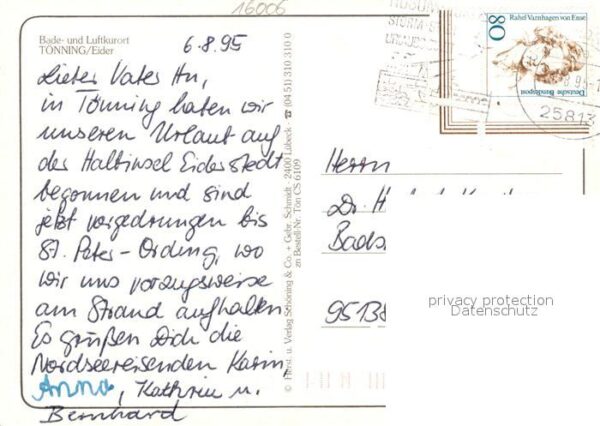 16006
Bade- und Luftkurort
TÖNNING/Eider
6.8.95
Lieber Vater
in Tönning haben wir
unseren Urlaub auf
der Halbinsel Eiderstedt
begonnen und sind
jetzt vorgedrungen bis
St. Peter-Ording, wo
wir uns vorzugsweise
am Strand aufhalten.
Es grüßen Dich die
Nordseereisenden Karin,
Anna, Kathrin u.
Bernhard
© Horst. u. Verlag Schöning & Co. + Gebr. Schmidt · 2400 Lübeck · ☎ (04 51) 310 310 0
zu Bestell/Nr. Tön CS 6109
Rahel Varnhagen von Ense
80
Deutsche Bundespost
25813
Herrn
Dr. H
Bads
95138
privacy protection
Datenschutz